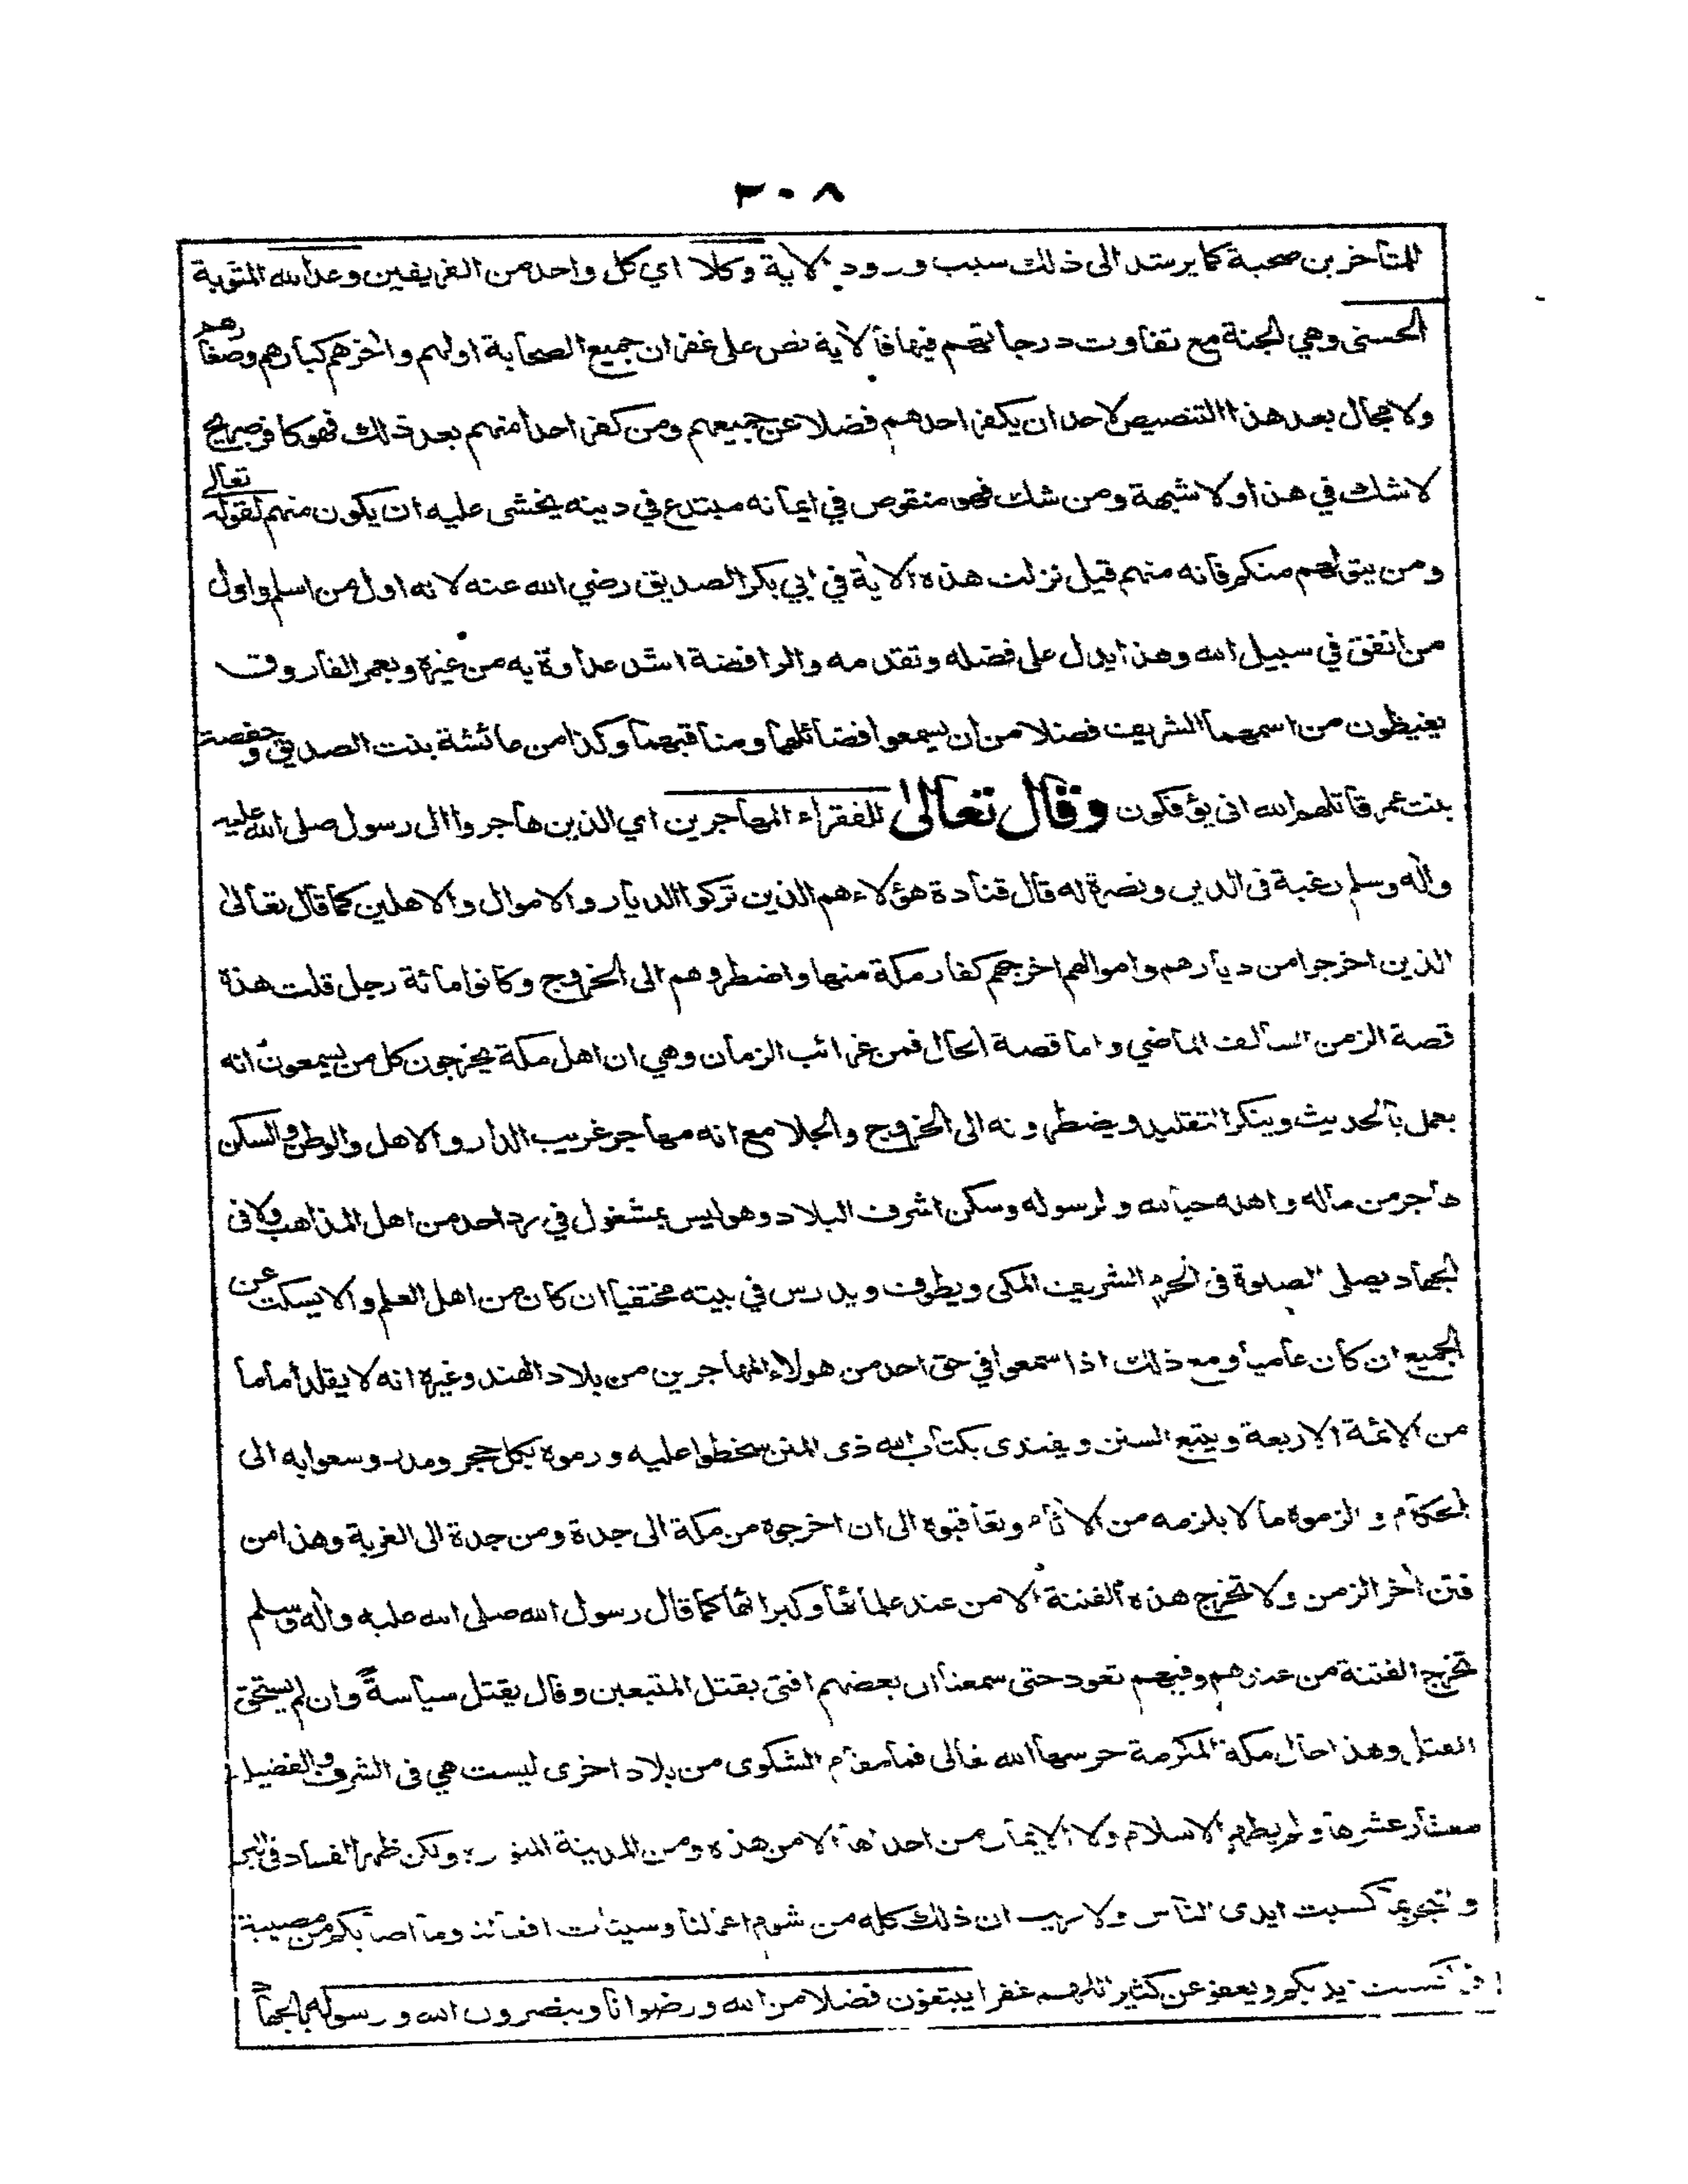 ٣٠٨
المتأخرين صحبة كما يرشد الى ذلك سبب ورود الاية وكلا اي كل واحد من الفريقين وعد الله المثوبة
الحسنى وهي الجنة مع تفاوت درجاتهم فيها فالاية نص على غفران جميع الصحابة اولهم واخرهم كبارهم وصغارهم
ولا مجال بعد هذا التنصيص لاحد ان يكفر احدهم فضلا عن جميعهم ومن كفر احدا منهم بعد ذلك فهو كافر صريح
لا شك في هذا ولا شبهة ومن شك فهو منقوص في ايمانه مبتدع في دينه يخشى عليه ان يكون منهم لقوله تعالى
ومن يتولهم منكم فانه منهم قيل نزلت هذه الاية في ابي بكر الصديق رضي الله عنه لانه اول من اسلم واول
من انفق في سبيل الله وهذا يدل على فضله وتقدمه والرافضة اشد عداوة به من غيره وبعمر الفاروق
يغيظون من اسمهما الشريف فضلا من ان يسمعوا فضائلهما ومناقبهما وكذا من عائشة بنت الصديق وحفصة
بنت عمر قاتلهم الله انى يؤفكون وقال تعالىٰ للفقراء المهاجرين اي الذين هاجروا الى رسول صلى الله عليه
واله وسلم رغبة فى الدين ونصرة له قال قتادة هؤلاء هم الذين تركوا الديار والاموال والاهلين كما قال تعالىٰ
الذين اخرجوا من ديارهم واموالهم اخرجهم كفار مكة منها واضطروهم الى الخروج وكانوا مائة رجل قلت هذه
قصة الزمن السالف الماضي واما قصة الحال فمن غرائب الزمان وهي ان اهل مكة يخرجون كل من يسمعون انه
يعمل بالحديث وينكر التقليد ويضطرونه الى الخروج والجلا مع انه مهاجر غريب الدار والاهل والوطن والسكن
هاجر من ماله واهله حبا لله ولرسوله وسكن اشرف البلاد وهو ليس بمشغول في رد احد من اهل المذاهب ولا فى
الجهاد يصلى الصلوة فى الحرم الشريف المكى ويطوف ويدرس في بيته مختفيا ان كان من اهل العلم والا يسكت عن
الجميع ان كان عاميا ومع ذلك اذا سمعوا في حق احد من هولاء المهاجرين من بلاد الهند وغيره انه لا يقلد اماما
من الائمة الاربعة ويتبع السنن ويقتدى بكتاب الله ذى المنن سخطوا عليه ورموه بكل حجر ومدر وسعوا به الى
الحكام والزموه ما لا يلزمه من الاثام وتعاقبوه الى ان اخرجوه من مكة الى جدة ومن جدة الى الغربة وهذا من
فتن اخر الزمن ولا تخرج هذه الفتنة الا من عند علمائها وكبرائها كما قال رسول الله صلى الله عليه واله وسلم
تخرج الفتنة من عندهم وفيهم تعود حتى سمعنا ان بعضهم افتى بقتل المتبعين وقال يقتل سياسةً وان لم يستحق
القتل وهذا حال مكة المكرمة حرسها الله تعالى فما مقام الشكوى من بلاد اخرى ليست هي فى الشرف والفضيلة
معشار عشرها ولم يظهر الاسلام ولا الايمان من احداها الا من هذه ومن المدينة المنورة ولكن ظهر الفساد فى البر
والبحر بما كسبت ايدى الناس ولا ريب ان ذلك كله من شوم اعمالنا وسيئات افعالنا وما اصابكم من مصيبة
فبما كسبت ايديكم ويعفو عن كثير اللهم غفرا يبتغون فضلا من الله ورضوانا وينصرون الله ورسوله بالجهاد